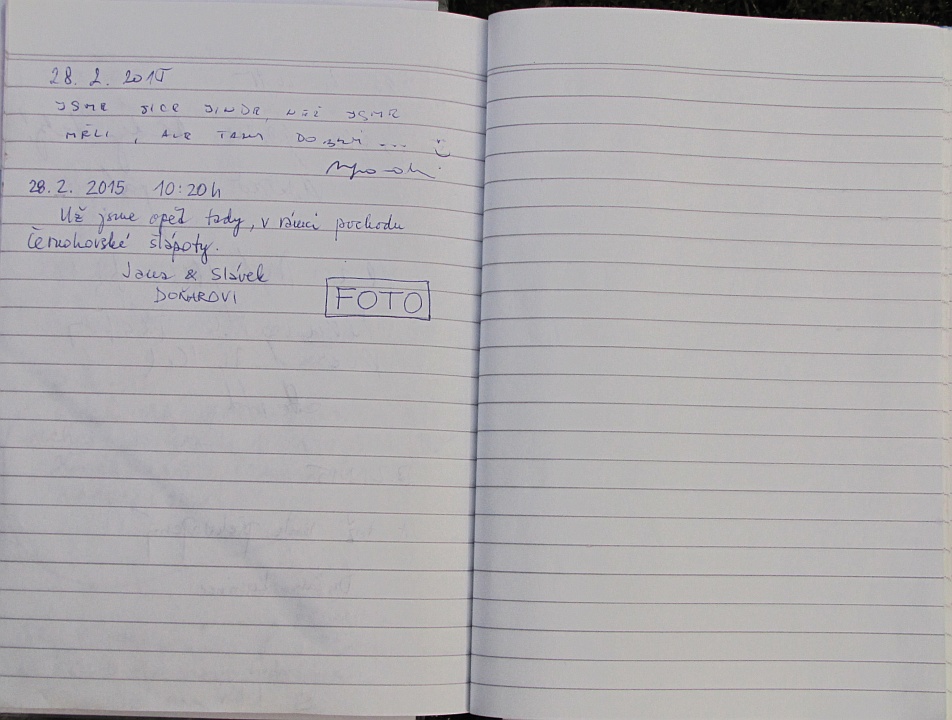 28. 2. 2015
JSME SICE JINDE, NEŽ JSME
MĚLI, ALE TAKY DOBRÝ ... :)
28. 2. 2015 10:20h
Už jsme opět tady, v rámci pochodu
Černohorské šlápoty.
Jana & Slávek
DOŇAROVI
FOTO